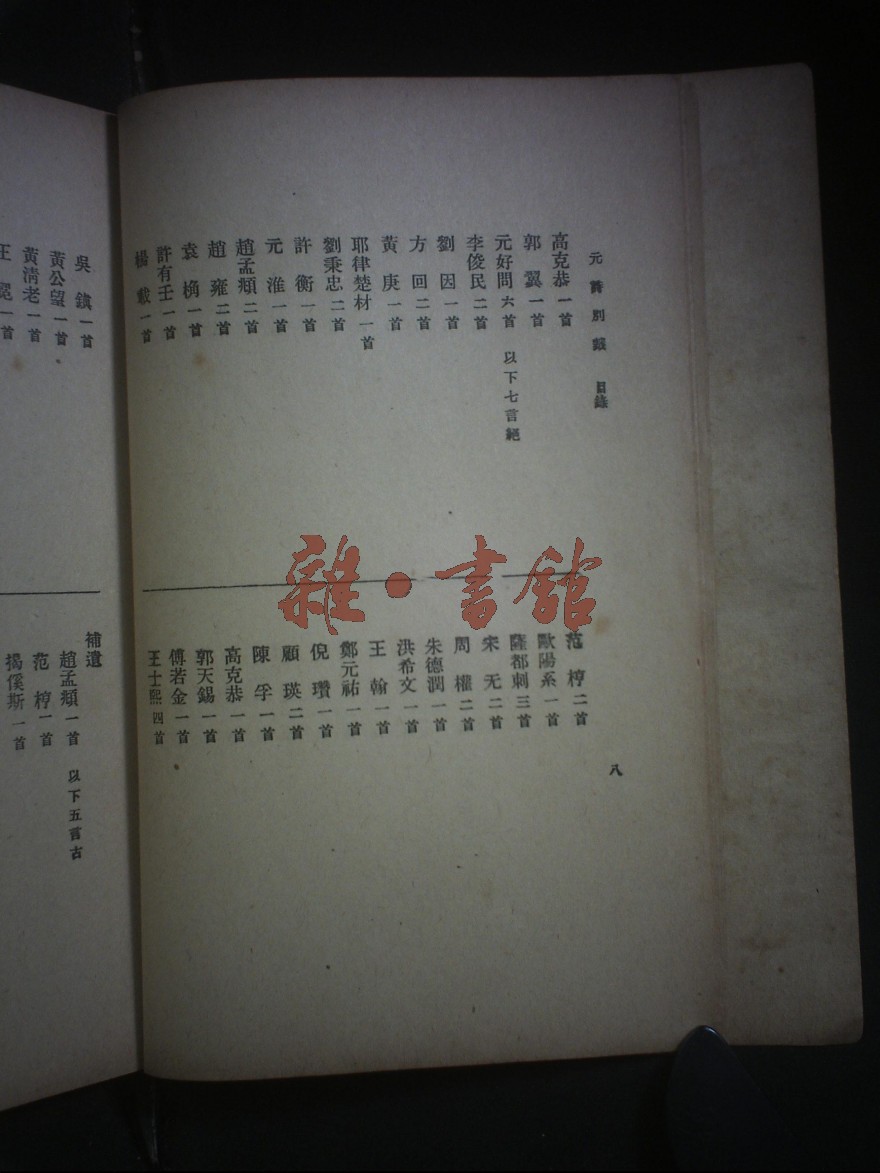 元詩別裁 目錄
八
高克恭一首
郭翼一首
元好問六首 以下七言絕
李俊民二首
劉因一首
方回二首
黃庚一首
耶律楚材一首
劉秉忠二首
許衡一首
元淮一首
趙孟頫二首
趙雍二首
袁桷一首
許有壬一首
楊載一首
范梈二首
歐陽系一首
薩都刺三首
宋无二首
周權二首
朱德潤一首
洪希文一首
王翰一首
鄭元祐一首
倪瓚一首
顧瑛二首
陳孚一首
高克恭一首
郭天錫一首
傅若金一首
王士熙四首
吳鎮一首
黃公望一首
黃清老一首
王冕一首
補遺
趙孟頫一首 以下五言古
范梈一首
揭傒斯一首
雜·書館